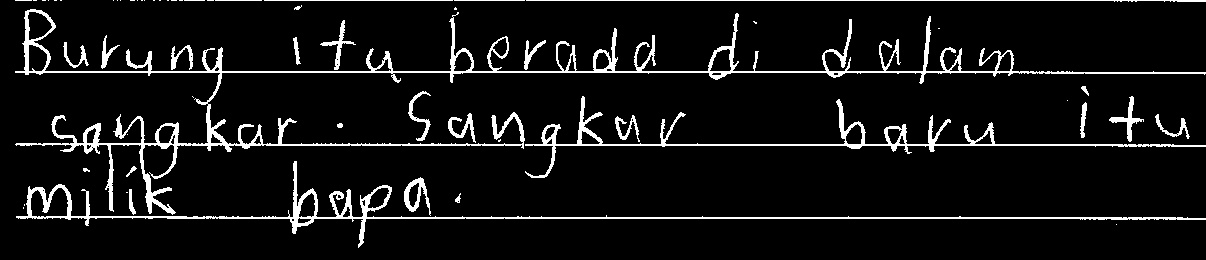 Burung itu berada di dalam
sangkar. Sangkar baru itu
milik bapa.